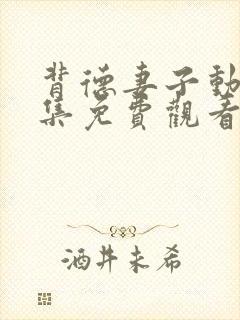 背德妻子動
集免費觀看
酒井未希